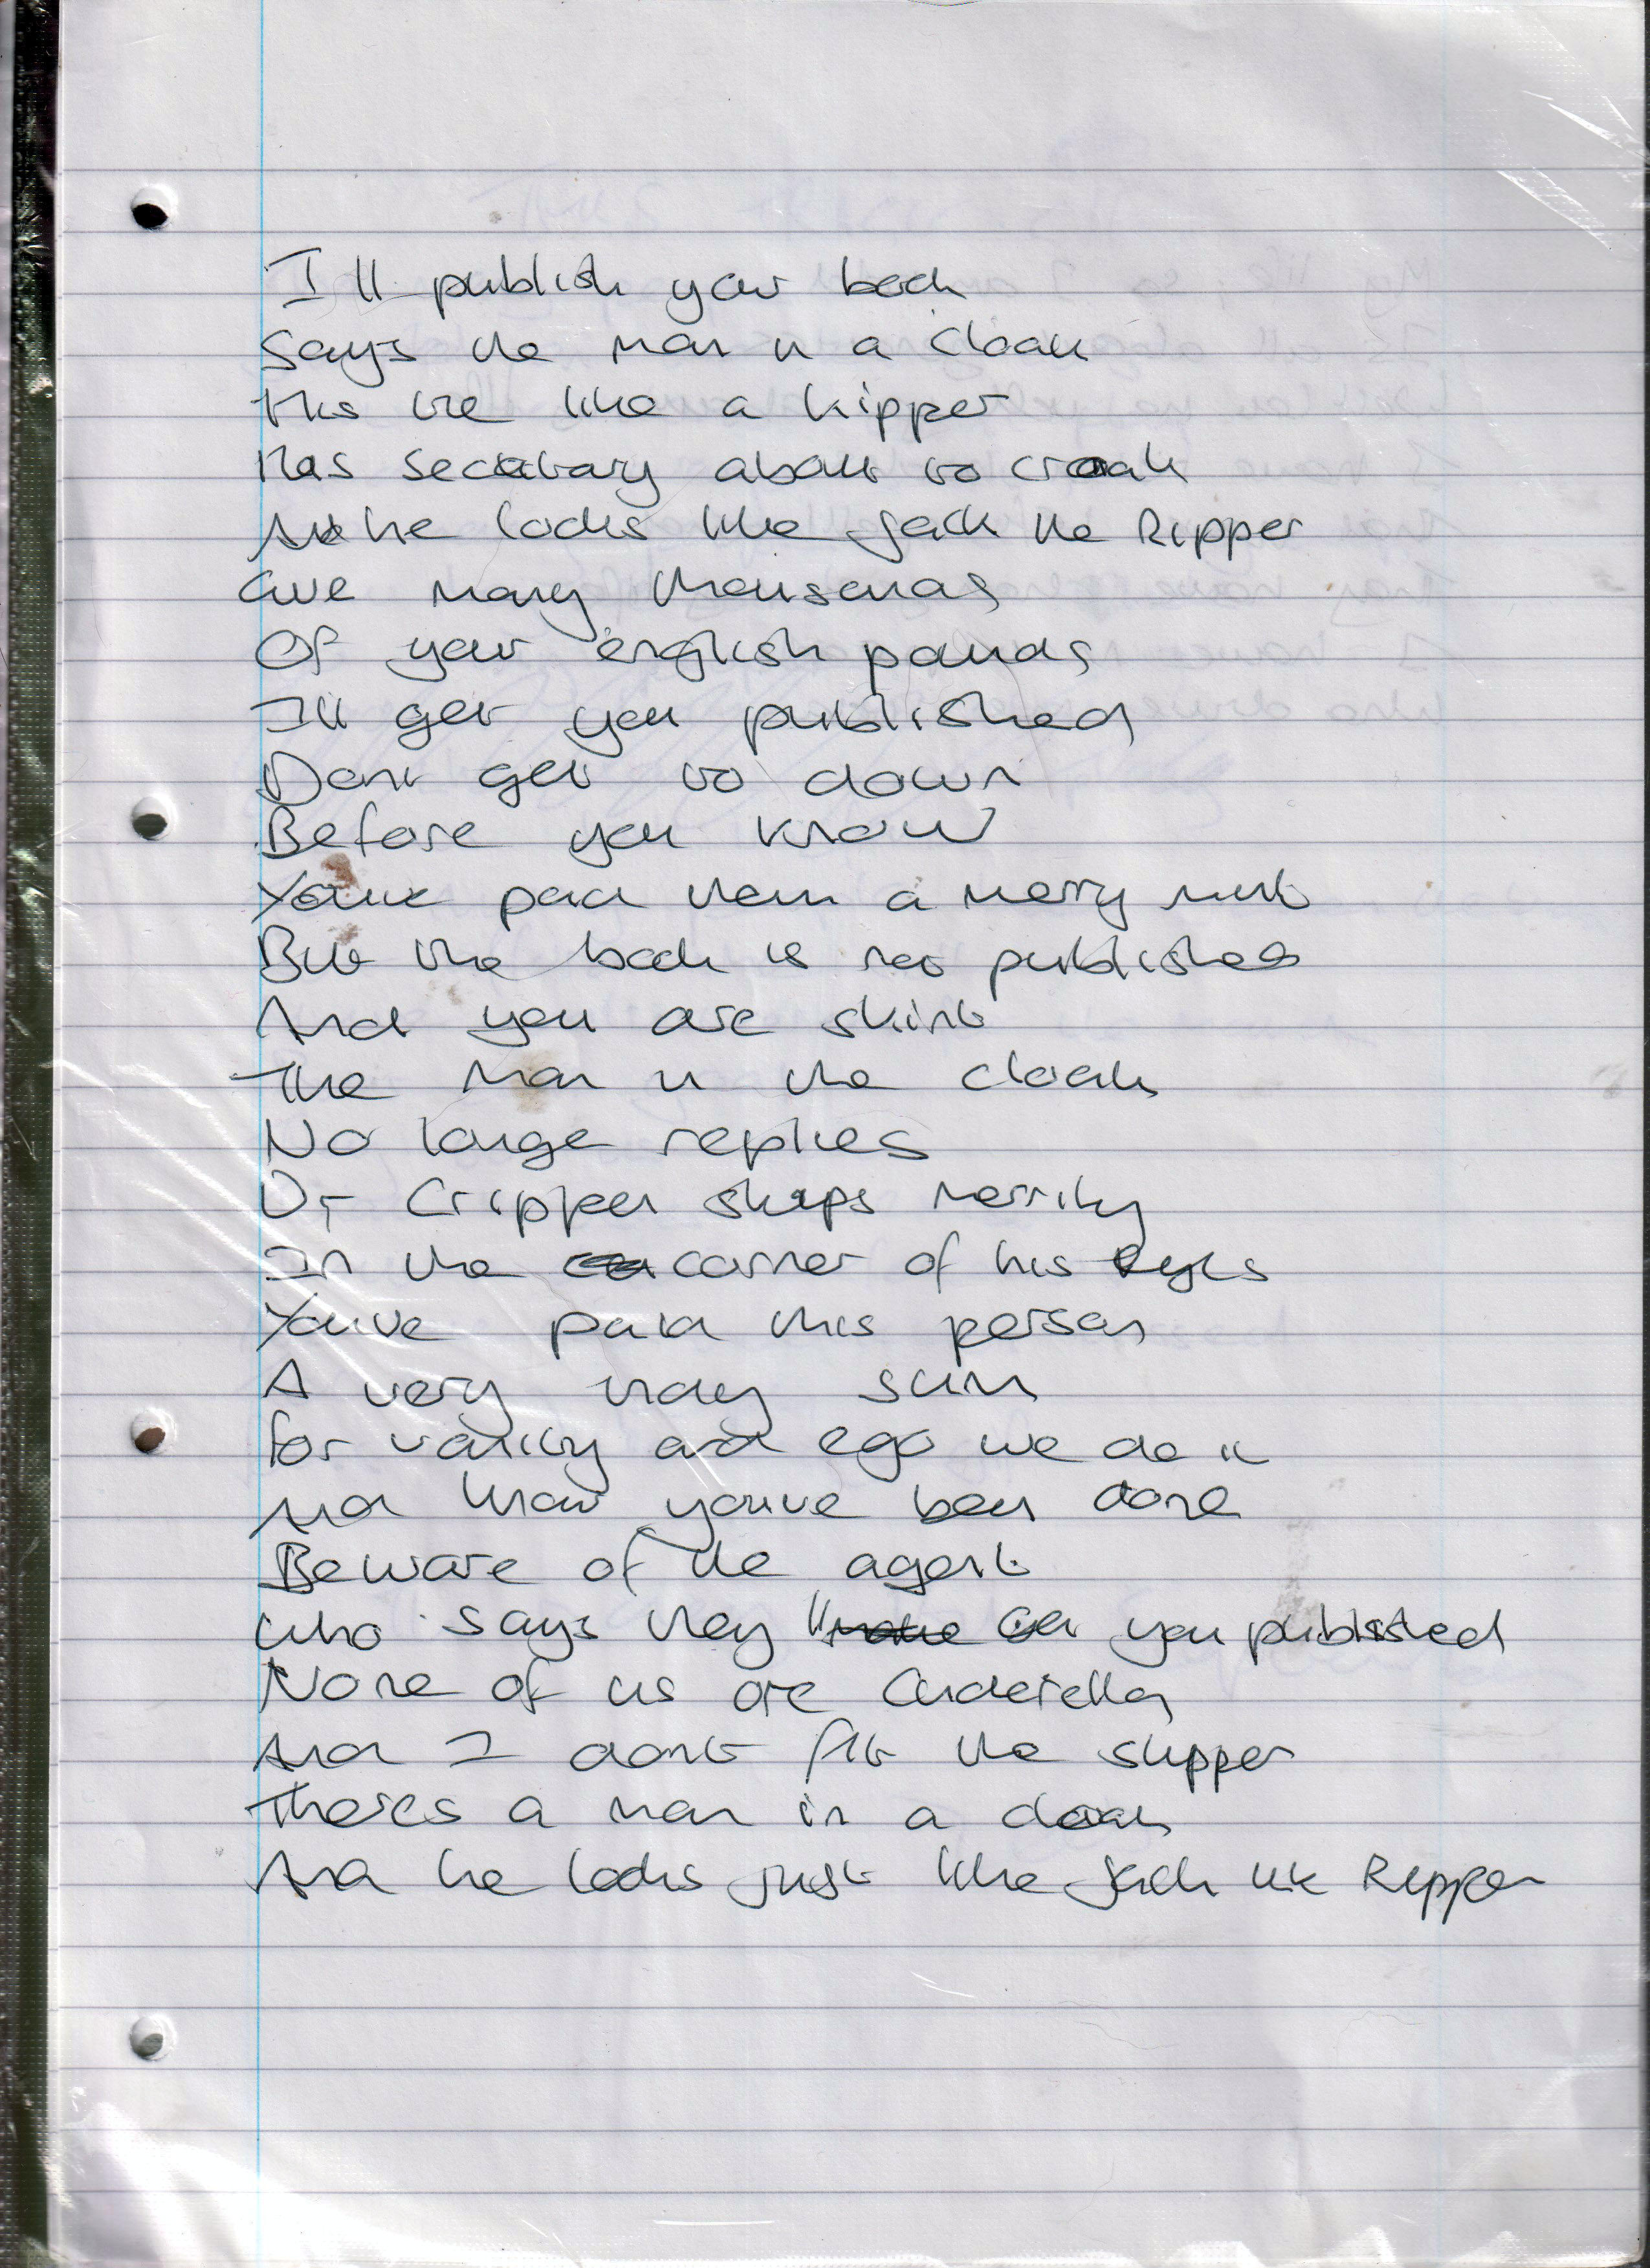 I'll publish your book
Says the man in a cloak
His tie like a kipper
His secretary about to croak
And he looks like Jack the Ripper
Give many thousands
Of your english pounds
I'll get you published
Dont get to down
Before you know
Youve paid them a merry mint
But the book is not published
And you are skint
The man in the cloak
No longe replies
Dr Crippen skips merrily
In the corner of his eyes
Youve paid this person
A very tidy sum
For vanity and ego we do it
And know youve been done
Beware of the agent
Who says they'll get you published
None of us are Cinderella
And I dont fit the slipper
Theres a man in a cloak
And he looks just like Jack the Ripper